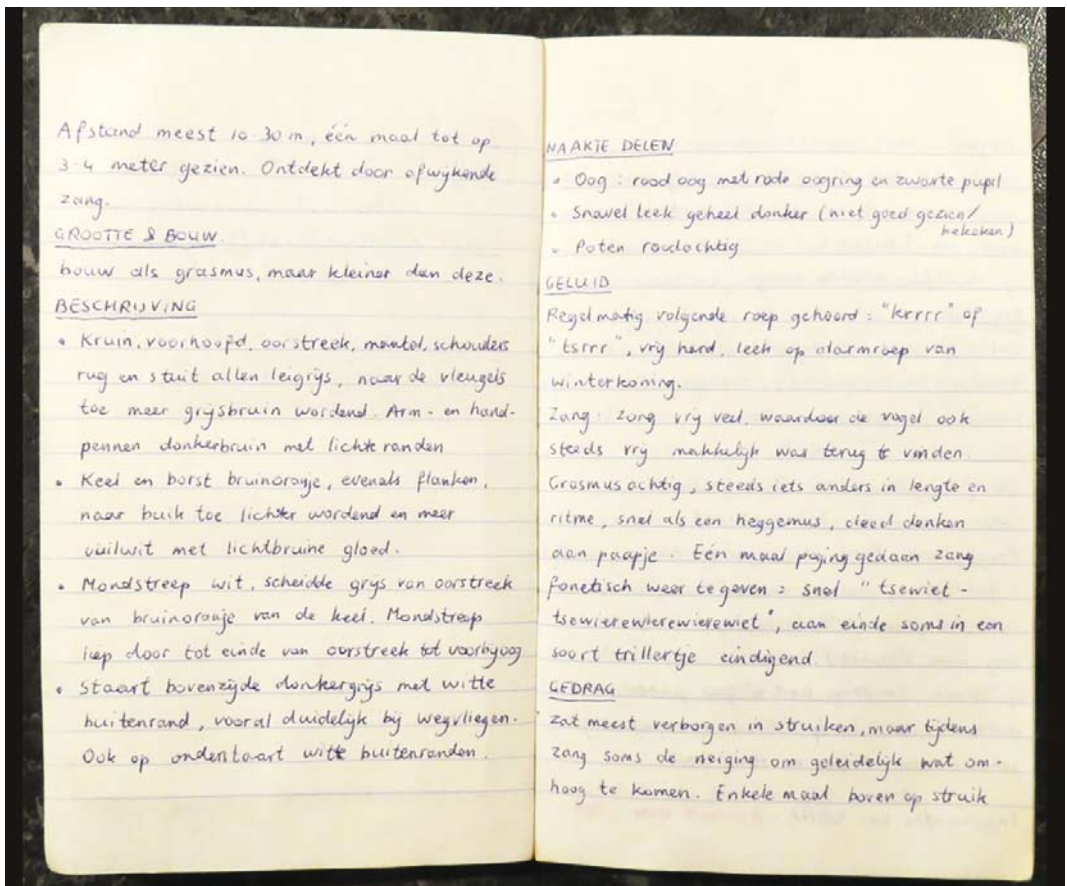 Afstand meest 10-30 m, één maal tot op
3-4 meter gezien. Ontdekt door afwijkende
zang.
GROOTTE & BOUW
bouw als grasmus, maar kleiner dan deze.
BESCHRIJVING
• Kruin, voorhoofd, oorstreek, mantel, schouders
rug en stuit allen leigrijs, naar de vleugels
toe meer grijsbruin wordend. Arm- en hand-
pennen donkerbruin met lichte randen
• Keel en borst bruinoranje, evenals flanken,
naar buik toe lichter wordend en meer
vuilwit met lichtbruine gloed.
• Mondstreep wit, scheidde grijs van oorstreek
van bruinoranje van de keel. Mondstreep
liep door tot einde van oorstreek tot voorbij oog
• Staart bovenzijde donkergrijs met witte
buitenrand, vooral duidelijk bij wegvliegen.
Ook op onderstaart witte buitenranden.
NAAKTE DELEN
• Oog : rood oog met rode oogring en zwarte pupil
• Snavel leek geheel donker (niet goed gezien/
bekeken)
• Poten roodachtig
GELUID
Regelmatig volgende roep gehoord : "krrrr" of
"tsrrr", vrij hard, leek op alarmroep van
winterkoning.
Zang : zong vrij veel, waardoor de vogel ook
steeds vrij makkelijk was terug te vinden.
Grasmusachtig, steeds iets anders in lengte en
ritme, snel als een heggemus, deed denken
aan paapje. Eén maal poging gedaan zang
fonetisch weer te geven : snel "tsewiet -
tsewierewierewierewiet", aan einde soms in een
soort trillertje eindigend.
GEDRAG
zat meest verborgen in struiken, maar tijdens
zang soms de neiging om geleidelijk wat om-
hoog te komen. Enkele maal boven op struik